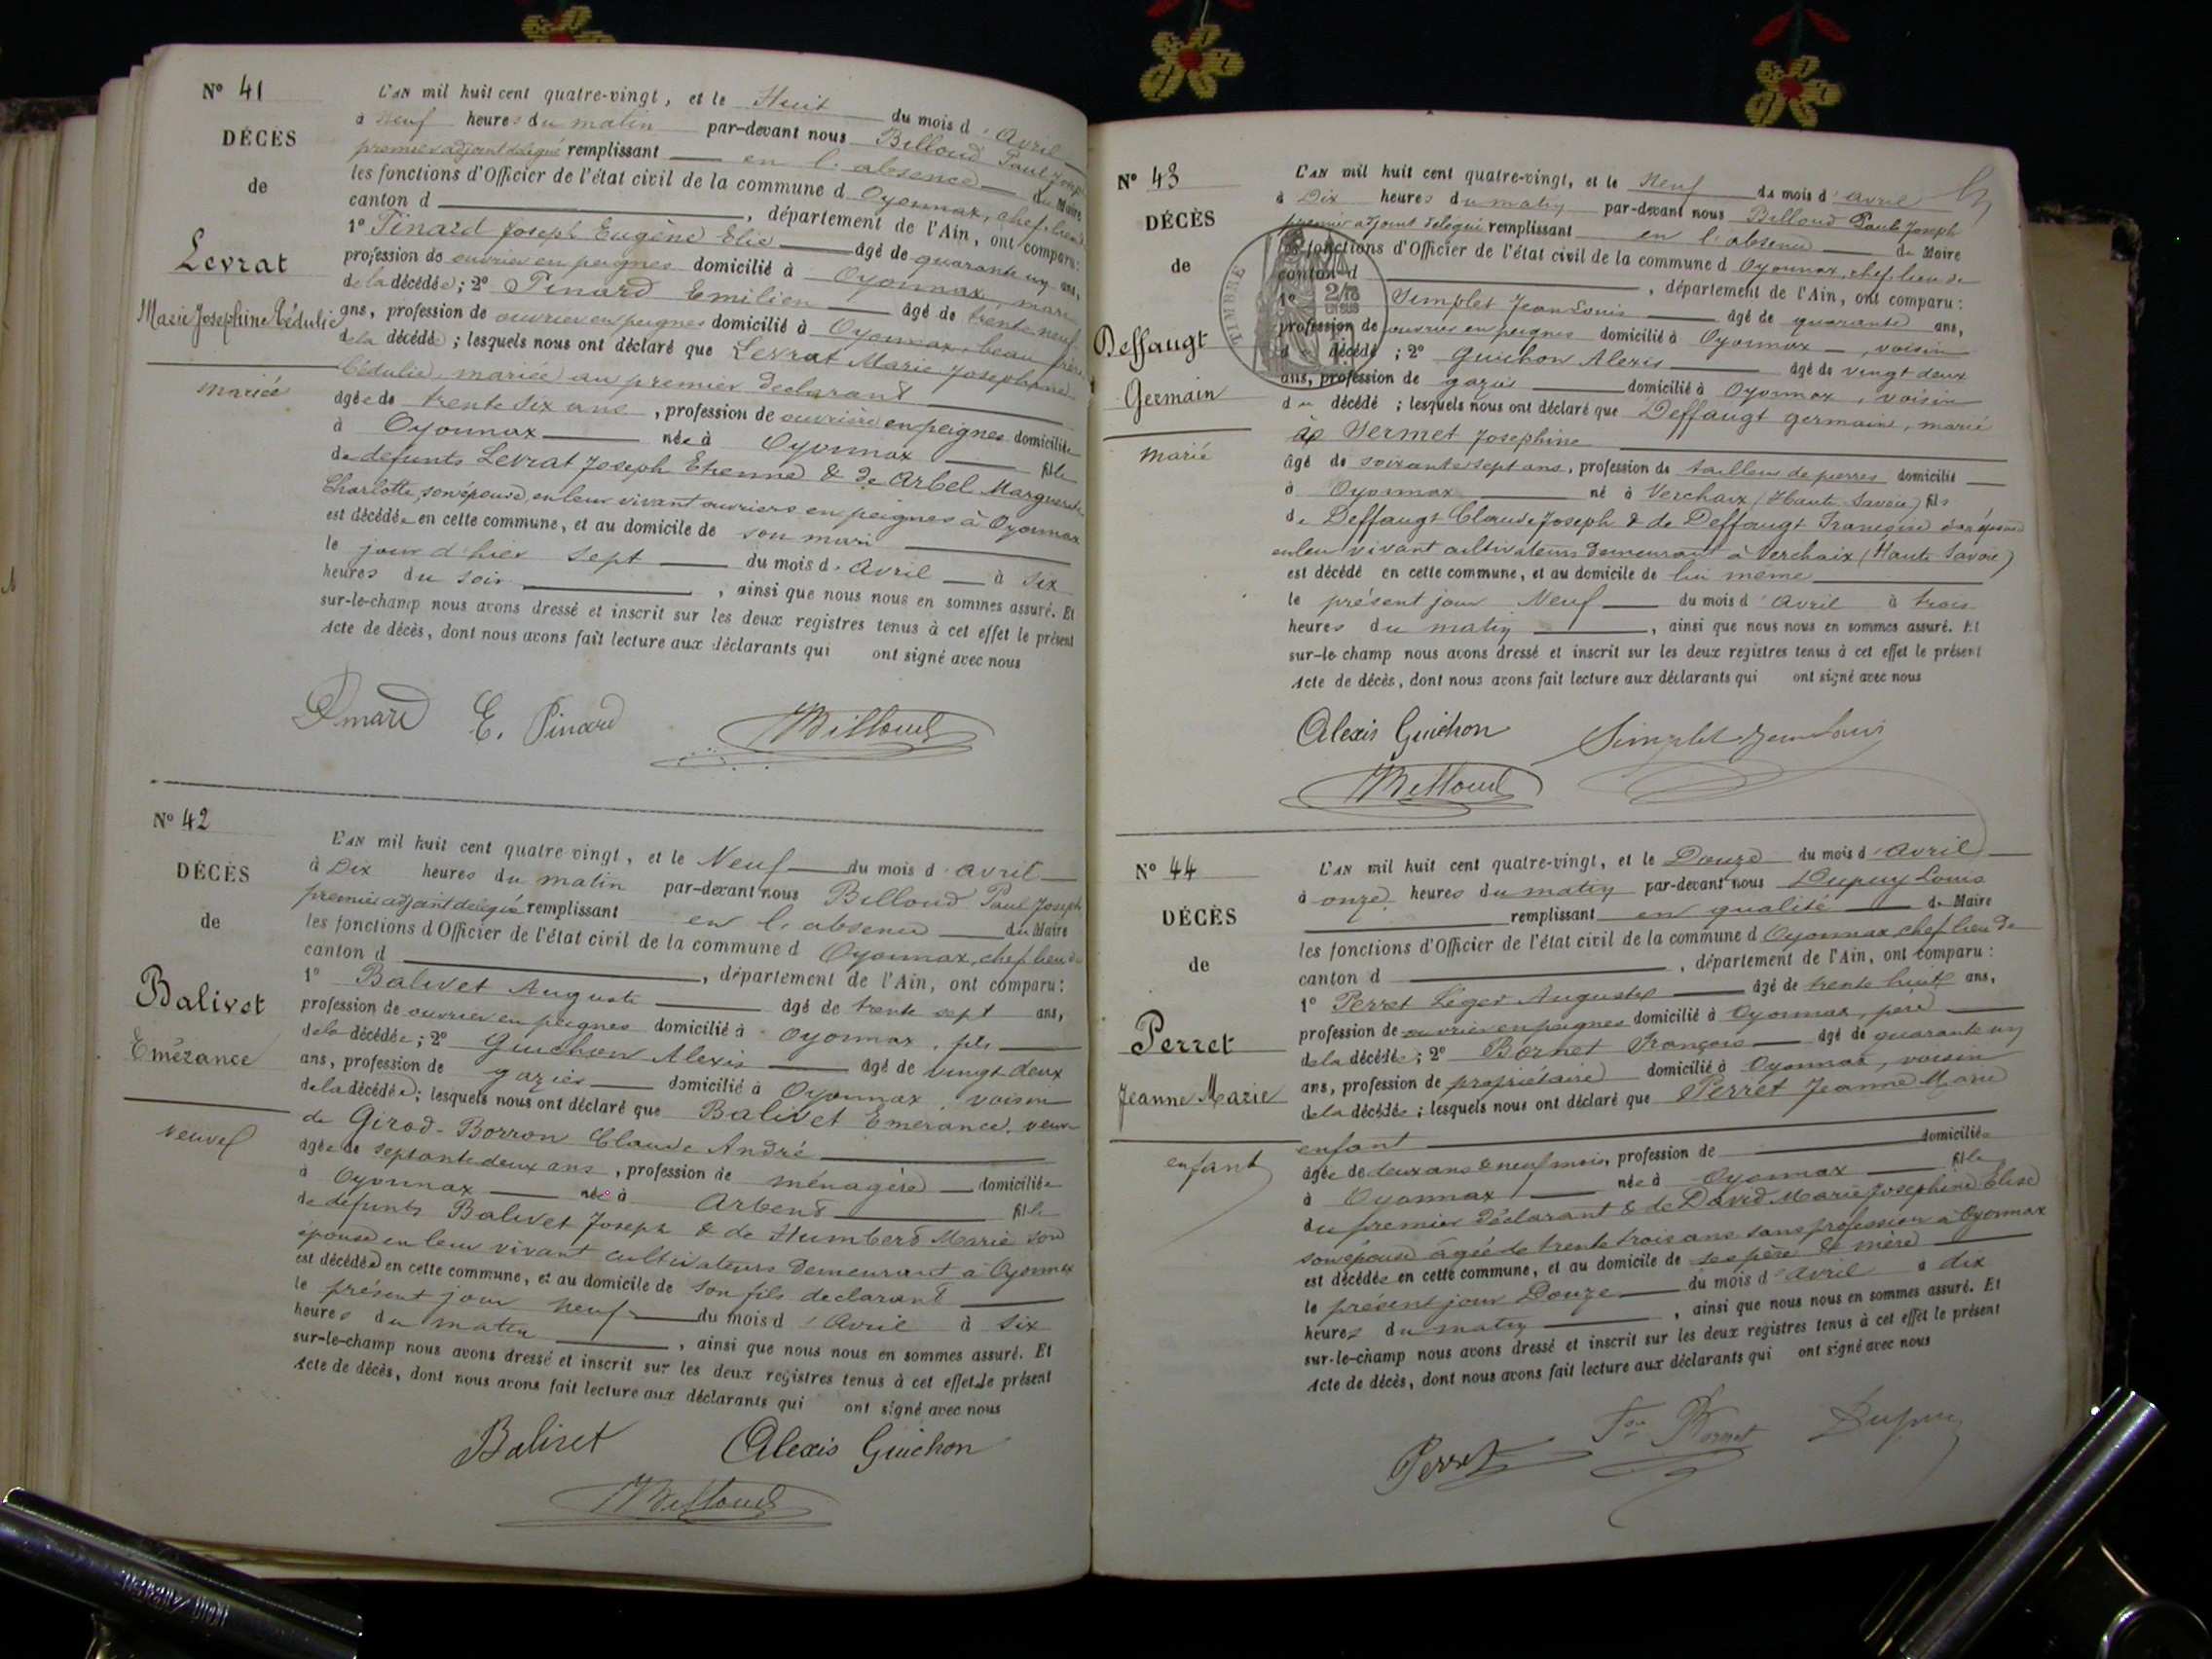 N° 41
DÉCÈS
de
Levrat
Marie Josephine Cédulie
mariée
L'AN mil huit cent quatre-vingt, et le Huit du mois d'Avril
à Neuf heures du matin par-devant nous Billoud Paul Joseph
premier adjoint délégué remplissant en l'absence du Maire
les fonctions d'Officier de l'état civil de la commune d Oyonnax, chef-lieu de
canton d , département de l'Ain, ont comparu:
1° Pinard Joseph Eugène Elie âgé de quarante un ans,
profession de ouvrier en peignes domicilié à Oyonnax, mari
de la décédée; 2° Pinard Emilien âgé de trente neuf
ans, profession de ouvrier en peignes domicilié à Oyonnax, beau frère
de la décédée; lesquels nous ont déclaré que Levrat Marie Josephine
Cédulie, mariée au premier déclarant
âgée de trente six ans, profession de ouvrière en peignes domiciliée
à Oyonnax née à Oyonnax fille
de défunts Levrat Joseph Etienne & de Arbel Marguerite
Charlotte, son épouse, en leur vivant ouvriers en peignes à Oyonnax
est décédée en cette commune, et au domicile de son mari
le jour d'hier sept du mois d'Avril à six
heures du soir , ainsi que nous nous en sommes assuré. Et
sur-le-champ nous avons dressé et inscrit sur les deux registres tenus à cet effet le présent
Acte de décès, dont nous avons fait lecture aux déclarants qui ont signé avec nous
Pinard E. Pinard Billoud
N° 42
DÉCÈS
de
Balivet
Emérance
veuve
L'AN mil huit cent quatre vingt, et le Neuf du mois d'avril
à Dix heures du matin par-devant nous Billoud Paul Joseph
premier adjoint délégué remplissant en l'absence du Maire
les fonctions d'Officier de l'état civil de la commune d Oyonnax, chef lieu de
canton d , département de l'Ain, ont comparu:
1° Balivet Auguste âgé de trente sept ans,
profession de ouvrier en peignes domicilié à Oyonnax, fils
de la décédée; 2° Guichon Alexis âgé de vingt deux
ans, profession de gazier domicilié à Oyonnax, voisin
de la décédée; lesquels nous ont déclaré que Balivet Emérance, veuve
de Girod-Borron Claude André
âgée de septante deux ans, profession de ménagère domiciliée
à Oyonnax née à Arbent fille
de défunts Balivet Joseph & de Humbert Marie son
épouse en leur vivant cultivateurs demeurant à Oyonnax
est décédée en cette commune, et au domicile de son fils déclarant
le présent jour neuf du mois d'Avril à six
heures du matin , ainsi que nous nous en sommes assuré. Et
sur-le-champ nous avons dressé et inscrit sur les deux registres tenus à cet effet le présent
Acte de décès, dont nous avons fait lecture aux déclarants qui ont signé avec nous
Balivet Alexis Guichon
Billoud
N° 43
DÉCÈS
de
Deffaugt
Germain
marié
TIMBRE
2/10
EN SUS
L'AN mil huit cent quatre-vingt, et le Neuf du mois d'avril
à Dix heures du matin par-devant nous Billoud Paul Joseph
premier adjoint délégué remplissant en l'absence du Maire
les fonctions d'Officier de l'état civil de la commune d Oyonnax, chef lieu de
canton d , département de l'Ain, ont comparu:
1° Simplet Jean Louis âgé de quarante ans,
profession de ouvrier en peignes domicilié à Oyonnax, voisin
du décédé; 2° Guichon Alexis âgé de vingt deux
ans, profession de gazier domicilié à Oyonnax, voisin
du décédé; lesquels nous ont déclaré que Deffaugt germain, marié
à Vermet Josephine
âgé de soixante sept ans, profession de tailleur de pierres domicilié
à Oyonnax né à Verchaix (Haute Savoie) fils
de Deffaugt Claude Joseph & de Deffaugt Françoise son épouse
en leur vivant cultivateurs demeurant à Verchaix (Haute Savoie)
est décédé en cette commune, et au domicile de lui même
le présent jour Neuf du mois d'Avril à trois
heures du matin , ainsi que nous nous en sommes assuré. Et
sur-le-champ nous avons dressé et inscrit sur les deux registres tenus à cet effet le présent
Acte de décès, dont nous avons fait lecture aux déclarants qui ont signé avec nous
Alexis Guichon Simplet Jean Louis
Billoud
N° 44
DÉCÈS
de
Perret
Jeanne Marie
enfant
L'AN mil huit cent quatre-vingt, et le Douze du mois d'Avril
à onze heures du matin par-devant nous Dupuy Louis
remplissant en qualité de Maire
les fonctions d'Officier de l'état civil de la commune d Oyonnax chef lieu de
canton d , département de l'Ain, ont comparu:
1° Perret Léger Auguste âgé de trente huit ans,
profession de ouvrier en peignes domicilié à Oyonnax, père
de la décédée; 2° Bornet François âgé de quarante un
ans, profession de propriétaire domicilié à Oyonnax, voisin
de la décédée; lesquels nous ont déclaré que Perret Jeanne Marie
enfant
âgée de deux ans & neuf mois, profession de domiciliée
à Oyonnax née à Oyonnax fille
du premier déclarant & de David Marie Josephine Elise
son épouse âgée de trente trois ans sans profession à Oyonnax
est décédée en cette commune, et au domicile de ses père & mère
le présent jour Douze du mois d'avril à dix
heures du matin , ainsi que nous nous en sommes assuré. Et
sur-le-champ nous avons dressé et inscrit sur les deux registres tenus à cet effet le présent
Acte de décès, dont nous avons fait lecture aux déclarants qui ont signé avec nous
Perret Fçois Bornet Dupuy